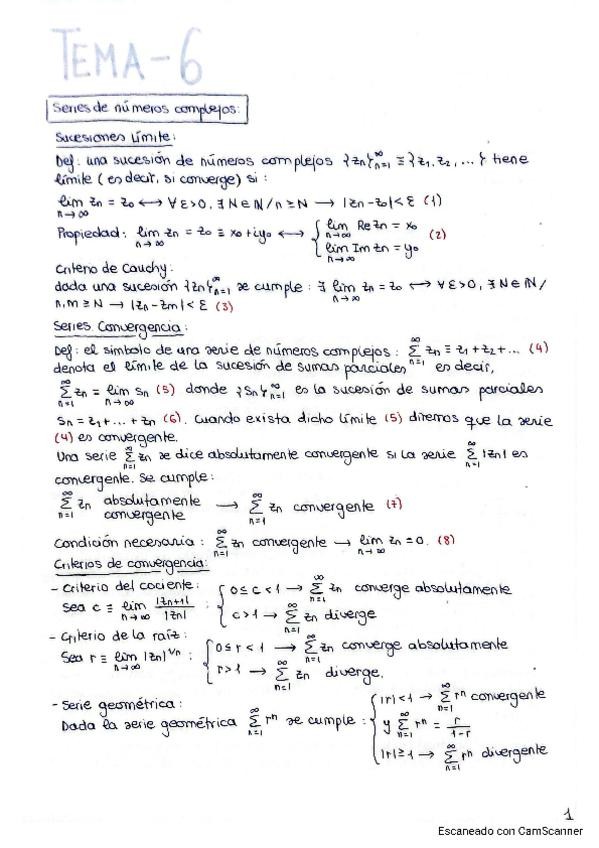 TEMA-6
Series de números complejos:
Sucesiones Límite:
Def: una sucesión de números complejos {zn}∞n=1 ≡ {z1, z2, ...} tiene
límite (es decir, si converge) si:
lim n→∞ zn = z0 ⟷ ∀ε>0, ∃N∈ℕ/n≥N → |zn-z0|<ε (1)
Propiedad: lim n→∞ zn = z0 ≡ x0+iy0 ⟷ { lim n→∞ Re zn = x0
lim n→∞ Im zn = y0 (2)
Criterio de Cauchy:
dada una sucesión {zn}∞n=1 se cumple: ∃ lim n→∞ zn = z0 ⟷ ∀ε>0, ∃N∈ℕ/
n,m≥N → |zn-zm|<ε (3)
Series. Convergencia:
Def: el símbolo de una serie de números complejos: ∞Σn=1 zn ≡ z1+z2+... (4)
denota el límite de la sucesión de sumas parciales es decir,
∞Σn=1 zn = lim n→∞ Sn (5) donde {Sn}∞n=1 es la sucesión de sumas parciales
Sn = z1+...+zn (6). Cuando exista dicho límite (5) diremos que la serie
(4) es convergente.
Una serie ∞Σn=1 zn se dice absolutamente convergente si la serie ∞Σn=1 |zn| es
convergente. Se cumple:
∞Σn=1 zn absolutamente convergente → ∞Σn=1 zn convergente (7)
Condición necesaria: ∞Σn=1 zn convergente → lim n→∞ zn = 0. (8)
Criterios de convergencia:
- Criterio del cociente:
Sea c ≡ lim n→∞ |zn+1|/|zn| : { 0≤c<1 → ∞Σn=1 zn converge absolutamente
c>1 → ∞Σn=1 zn diverge
- Criterio de la raíz:
Sea r ≡ lim n→∞ |zn|^1/n : { 0≤r<1 → ∞Σn=1 zn converge absolutamente
r>1 → ∞Σn=1 zn diverge.
- Serie geométrica:
Dada la serie geométrica ∞Σn=1 r^n se cumple: { |r|<1 → ∞Σn=1 r^n convergente
y ∞Σn=1 r^n = r/1-r
|r|≥1 → ∞Σn=1 r^n divergente
1
Escaneado con CamScanner